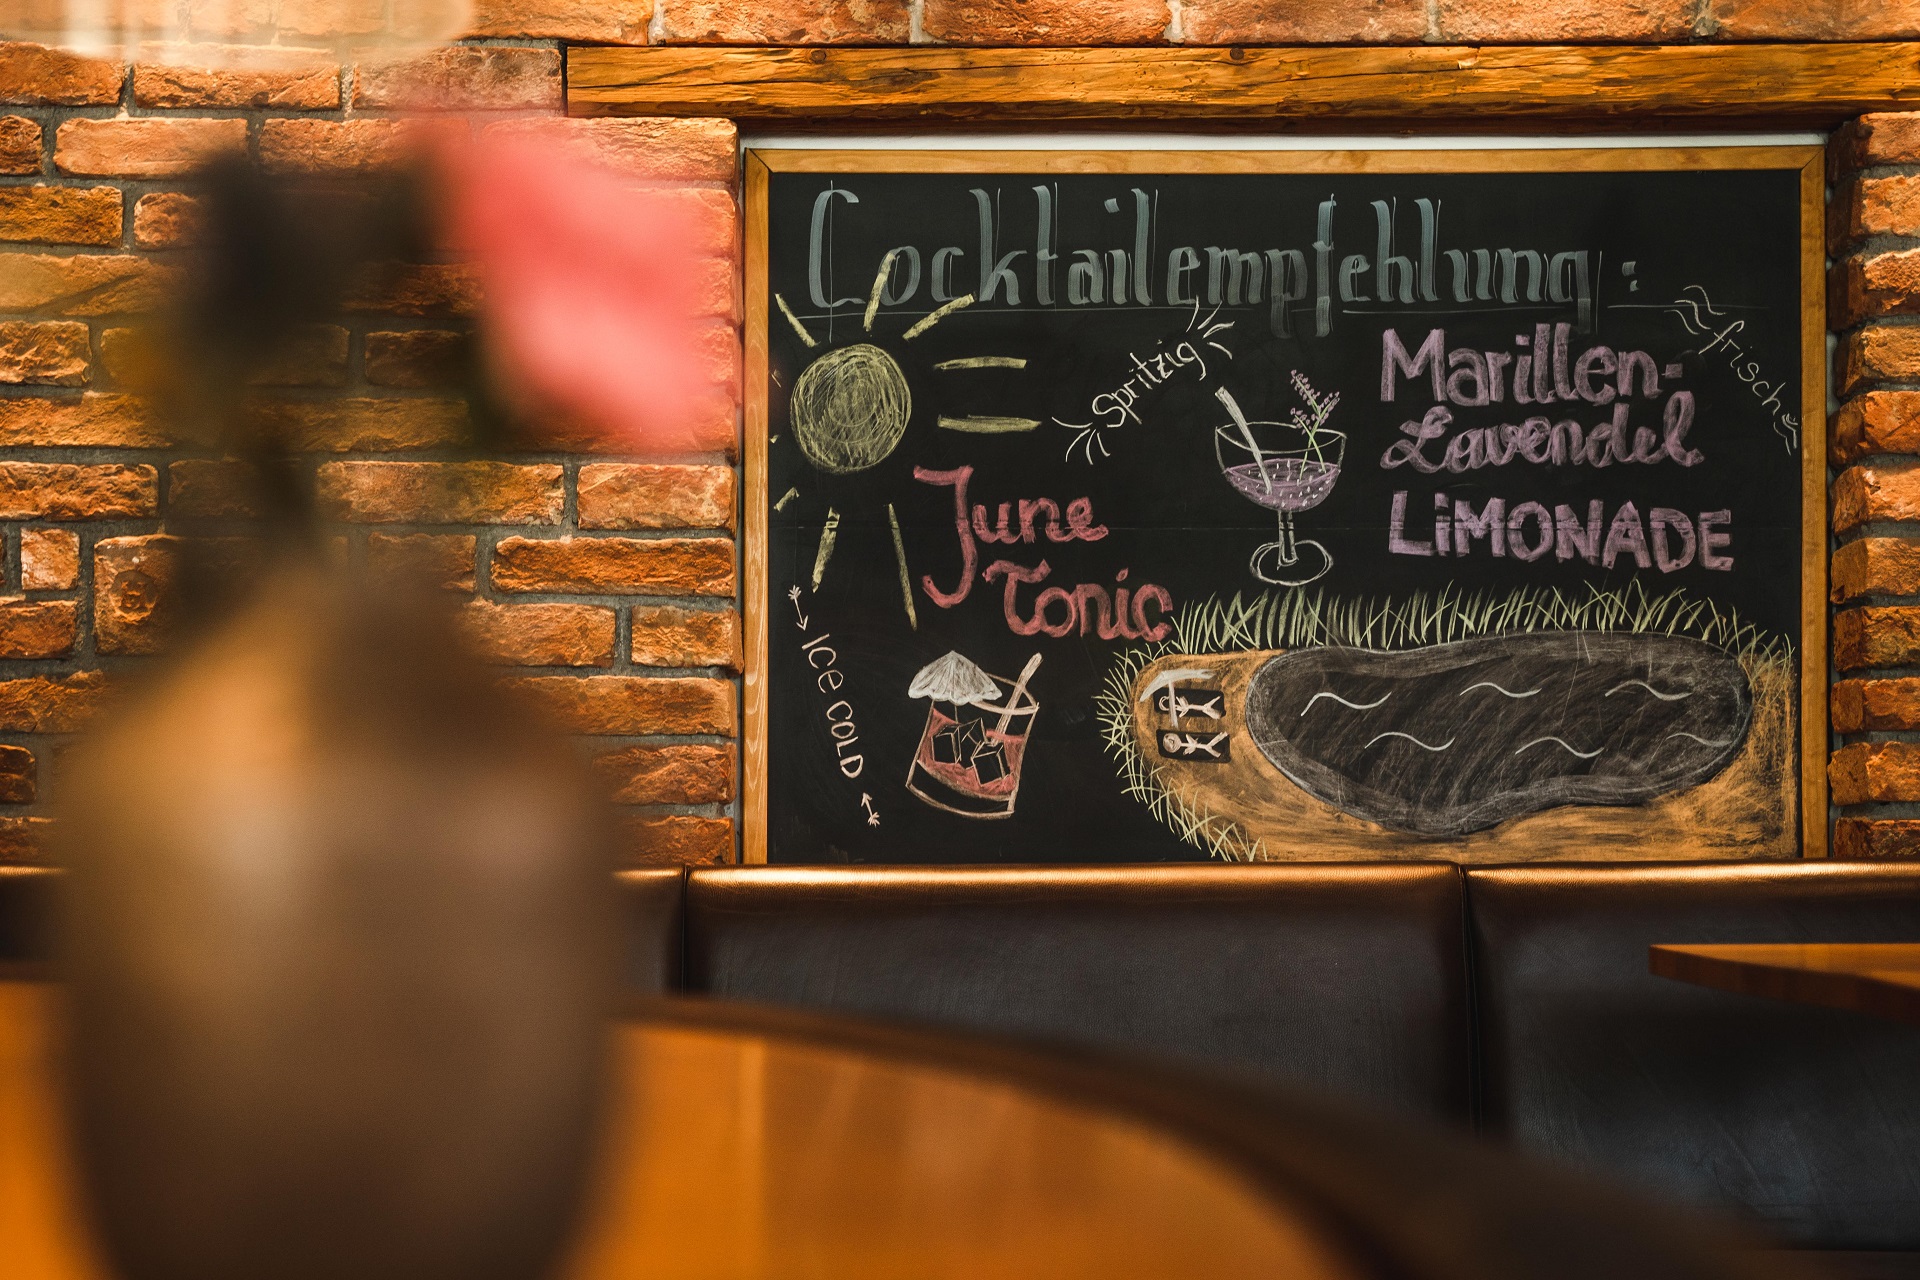 Cocktailempfehlung:
Spritzig
frisch
Marillen-
Lavendel
LiMONADE
June
Tonic
Ice COLD